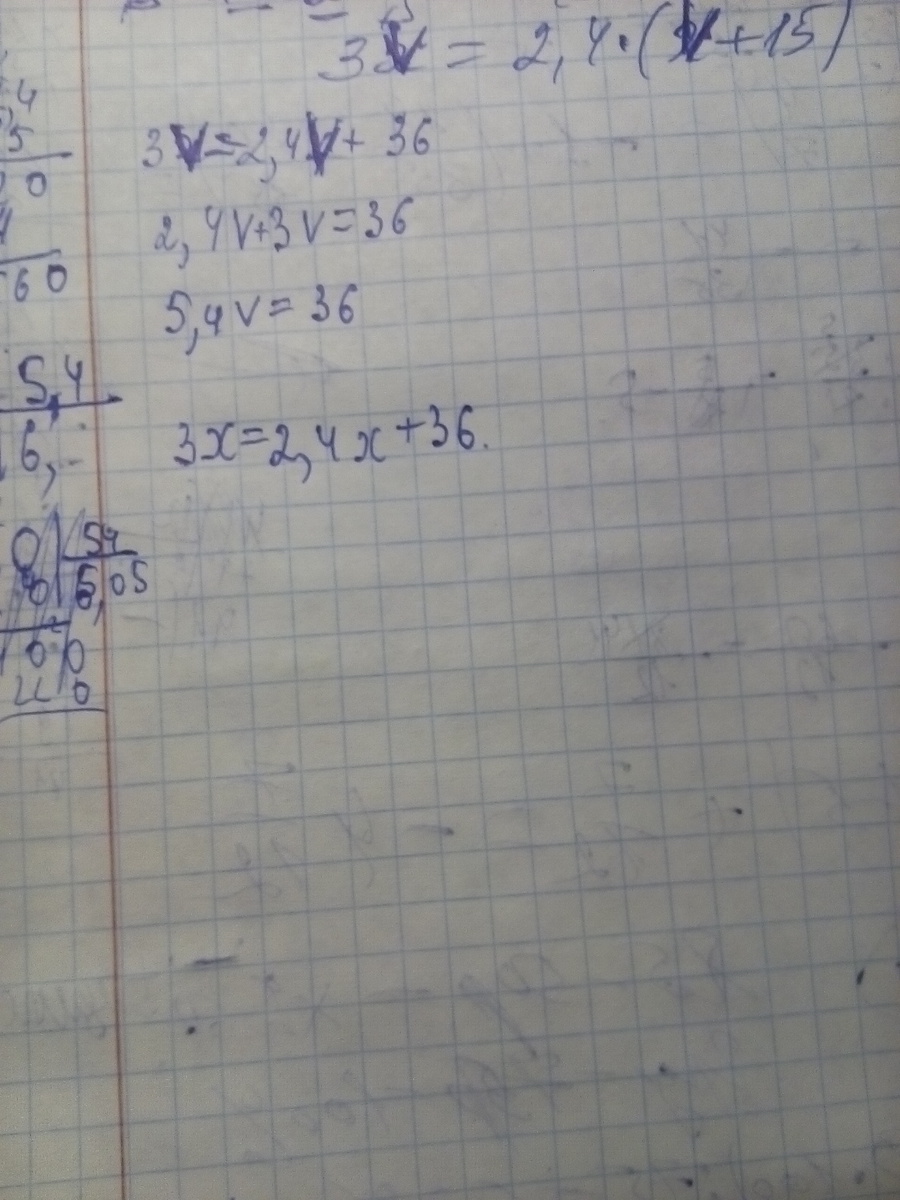 3V = 2,4·(V+15)
,4
5
3V=2,4V+ 36
0
2,4V+3V=36
60
5,4V= 36
5,4
6,
3x=2,4x+36.
0 54
0 6,05
0 0
0